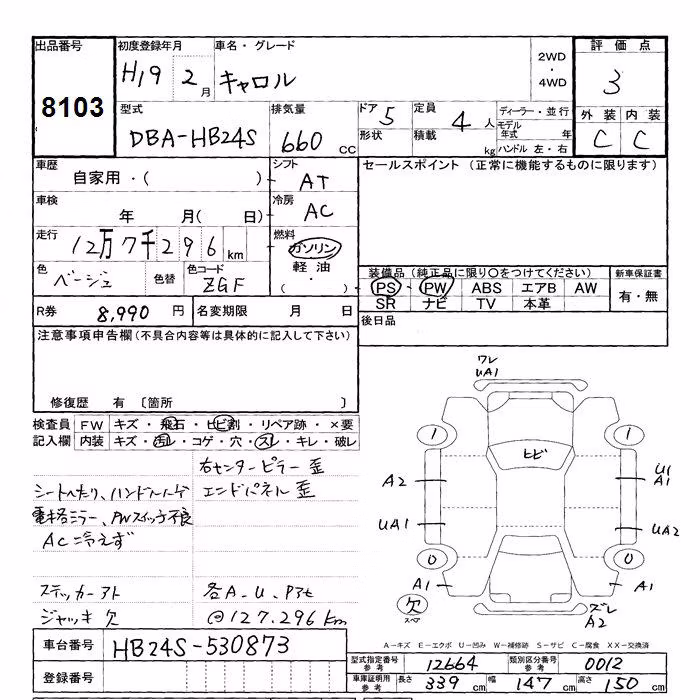 出品番号
8103
初度登録年月
H19 2 月
車名・グレード
キャロル
2WD
・
4WD
評価点
3
外装 内装
C C
型式
DBA-HB24S
排気量
660 CC
ドア 5
形状
定員 4 人
積載 kg
ディーラー・並行
モデル年式 年
ハンドル 左・右
車歴
自家用・( )
シフト
AT
車検
年 月( 日)
冷房
AC
走行
12万7千296 km
燃料
ガソリン
軽油
( )
色
ベージュ
色替
色コード
ZGF
R券 8,990 円
名変期限 月 日
セールスポイント (正常に機能するものに限ります)
装備品 (純正品に限り○をつけてください)
PS PW ABS エアB AW
SR ナビ TV 本革
新車保証書
有・無
後日品
注意事項申告欄(不具合内容等は具体的に記入して下さい)
修復歴 有 〔箇所 〕
検査員記入欄
FW キズ・飛石・ヒビ割・リペア跡・×要
内装 キズ・汚レ・コゲ・穴・スレ・キレ・破レ
右センターピラー歪
シートへたり、ハンドルハゲ エンドパネル歪
電格ミラー、PWスイッチ不良
AC冷えず
ステッカーアト 各A.U.Pアセ
ジャッキ欠 @127.296km
車台番号 HB24S-530873
登録番号
ワレ
UA1
1 1
ヒビ
A2
U1
A1
UA1
UA2
0 0
A1 A1
欠
スペア
ズレ
A2
A-キズ E-エクボ U-凹み W-補修跡 S-サビ C-腐食 XX-交換済
型式指定番号 参考 12664
類別区分番号 参考 0012
車庫証明用 参考 長さ 339 cm 幅 147 cm 高さ 150 cm